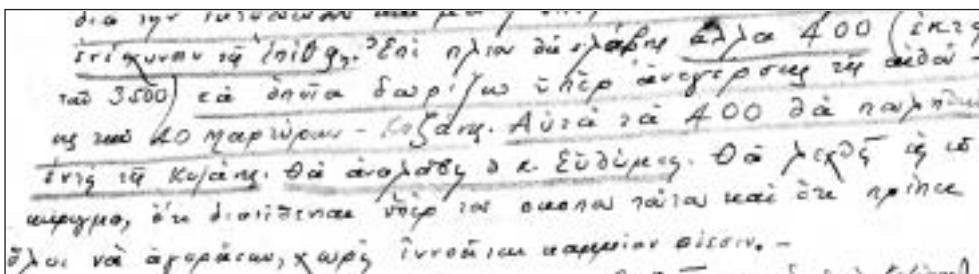 διὰ τὴν ἐκτύπωσιν καὶ
ἐνίσχυσιν τῆς Ἐπιθ/σης. Ἐπὶ πλέον θὰ λάβῃς ἄλλα 400 (ἐκτὸς
τῶν 3500) τὰ ὁποῖα δωρίζω ὑπὲρ ἀνεγέρσεως τῆς αἰθού-
σης τῶν 40 Μαρτύρων - Κοζάνης. Αὐτὰ τὰ 400 θὰ πωληθοῦν
ἐντὸς τῆς Κοζάνης. Θὰ ἀναλάβῃ ὁ κ. Εὐθύμιος. Θὰ λεχθῇ εἰς τὸ
κήρυγμα, ὅτι διατίθενται ὑπὲρ τοῦ σκοποῦ τούτου καὶ ὅτι πρέπει
ὅλοι νὰ ἀγοράσουν, χωρὶς ἐννοεῖται καμμίαν πίεσιν. -